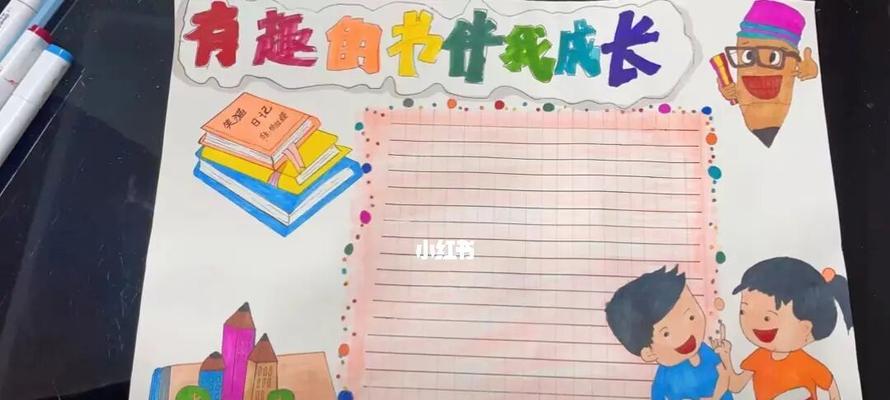 有趣的书伴我成长
笑猫
日记
小红书